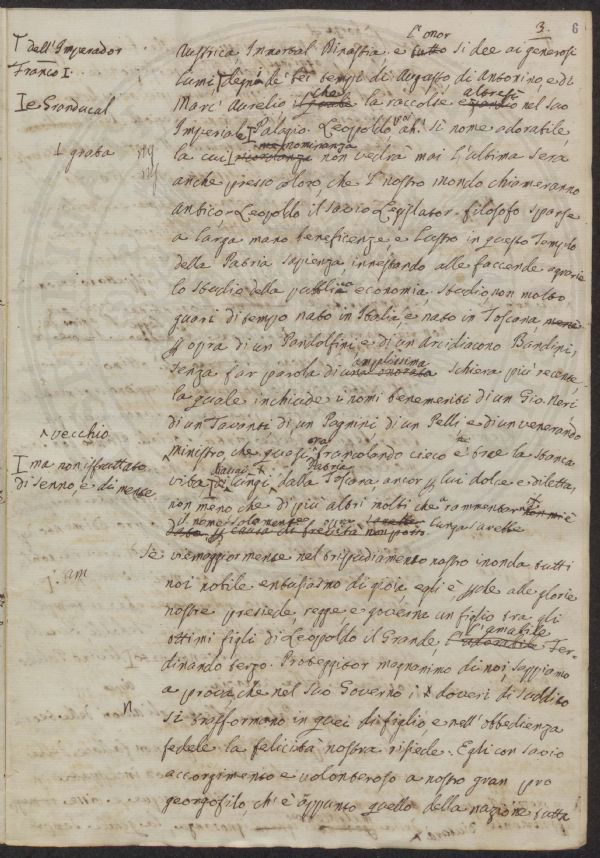 3. 6
dell'Imperador
Franco I.
e Granducal
grata
vecchio
ma non isfruttato
di senno, e di mente
l'onor
Austrica Immortal Dinastia e tutto si dee ai generosi
lumi degni de' bei tempi di Augusto, di Antonino, e di
che altresì
Marc' Aurelio il quale la raccolse nel suo
Imperiale Palagio. Leopoldo, ah! sì nome adorabile,
nominanza
la cui ricordanza non vedrà mai l'ultima sera
anche presso coloro, che il nostro mondo chiameranno
antico, Leopoldo il savio Legislator-filosofo sparse
a larga mano beneficenze, e lustro in questo Tempio
della Patria sapienza, innestando alle faccende agrarie
lo studio della pubblica economia, studio, non molto
guari di tempo nato in Italia, e nato in Toscana,
opra di un Pandolfini e di un Arcidiacono Bandini,
amplissima
senza far parola di una onorata schiera più recente
la quale inchiude i nomi benemeriti di un Gio. Neri
di un Tavanti, di un Pagnini di un Pelli, e di un venerando
ora
ministro, che quasi brancolando cieco trae la stanca
Patria
vita lungi dalla Toscana, ancor per lui dolce e diletta,
non meno che di più altri molti che a rammentar
nome solamente lunga sarebbe
causa di brevità non posso
Se viemaggiormente nel tripudiamento nostro inonda tutti
noi nobile entusiasmo di gioia, egli è, che alle glorie
nostre presiede, regge e governa un figlio tra gli
l'amabile
ottimi figli di Leopoldo il Grande, l'adorabile Fer-
dinando terzo. Proteggitor magnanimo di noi, sappiamo
a prova, che nel suo Governo i doveri di suddito
si trasformano in quei di figlio, e nell'obbedienza
fedele la felicità nostra risiede. Egli con savio
accorgimento e volonteroso a nostro gran pro
georgofilo, ch'è appunto quello della nazione tutta